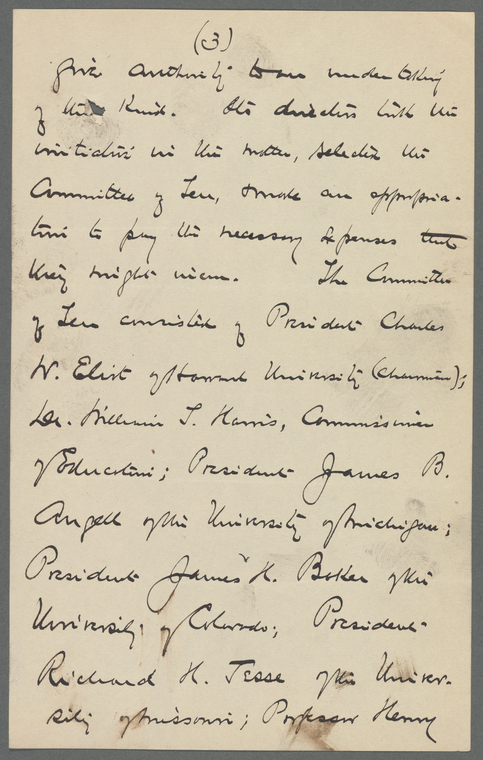 (3)
give authority to an undertaking
of this kind. Its directors took the
initiative in the matter, selected the
Committee of Ten, & made an appropria-
tion to pay the necessary expenses that
they might incur. The Committee
of Ten consisted of President Charles
W. Eliot of Harvard University (chairman);
Dr. William T. Harris, Commissioner
of Education; President James B.
Angell of the University of Michigan;
President James H. Baker of the
University of Colorado; President
Richard H. Jesse of the Univer-
sity of Missouri; Professor Henry